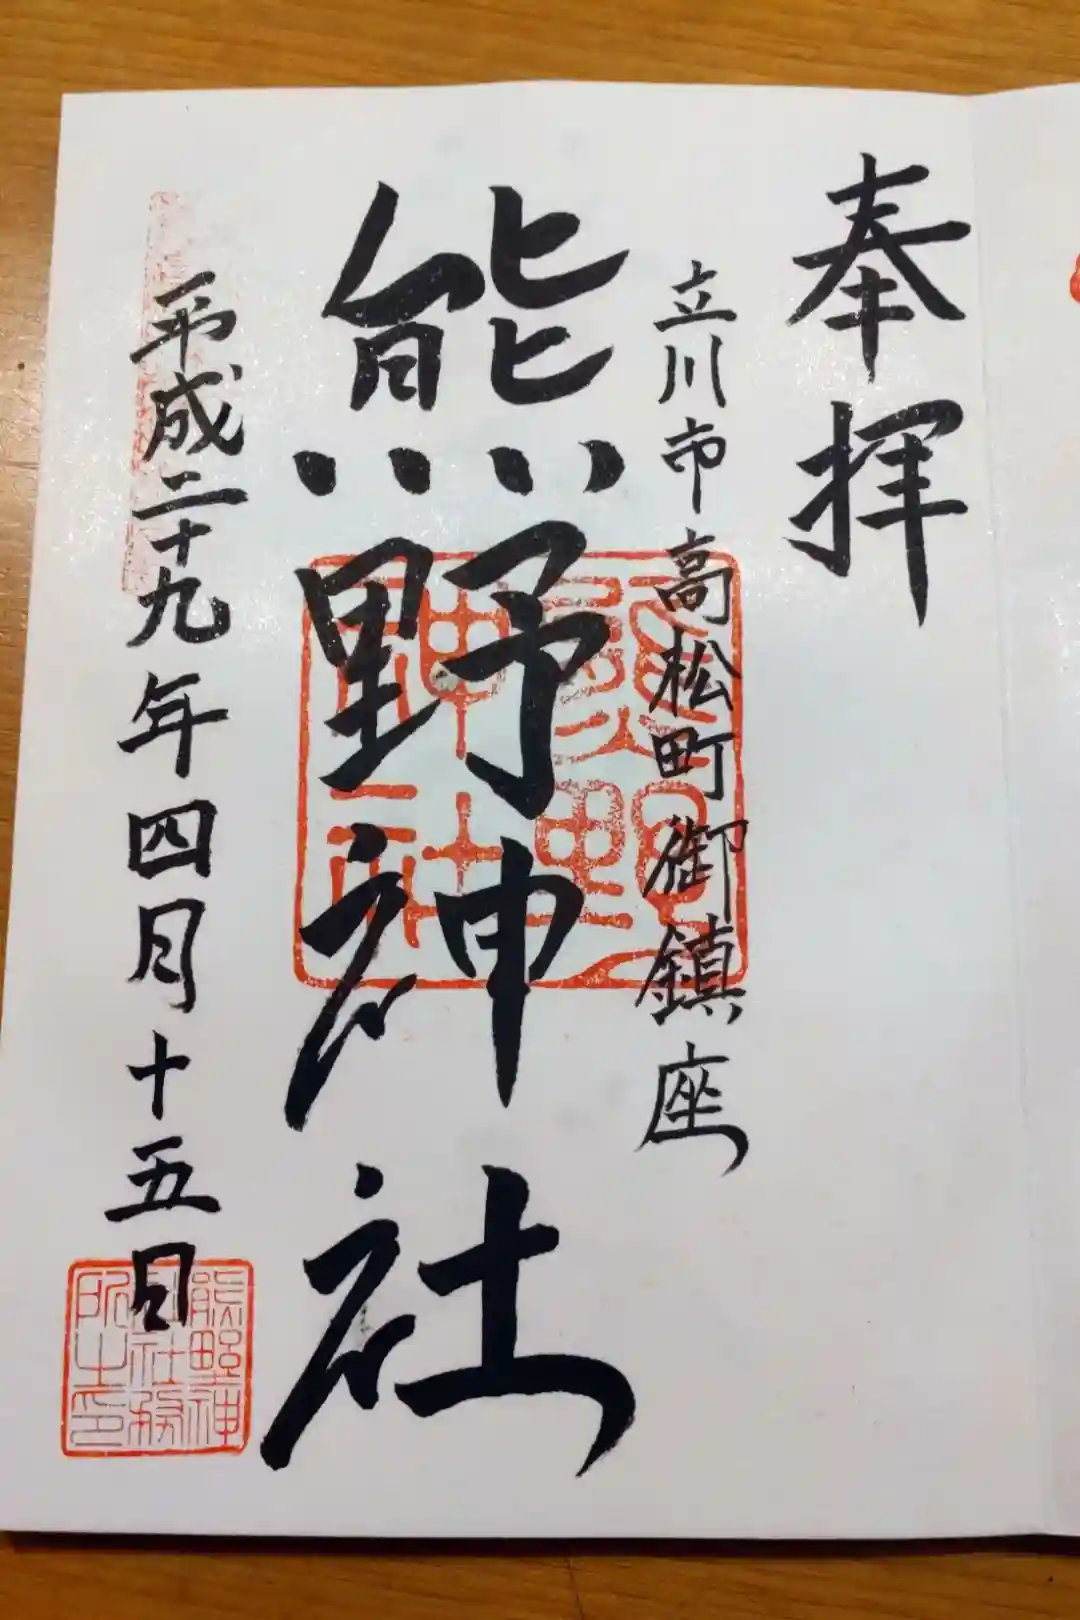 奉拝
立川市高松町御鎮座
熊野神社
平成二十九年四月十五日
熊野神社
熊野神
社社務
所之印